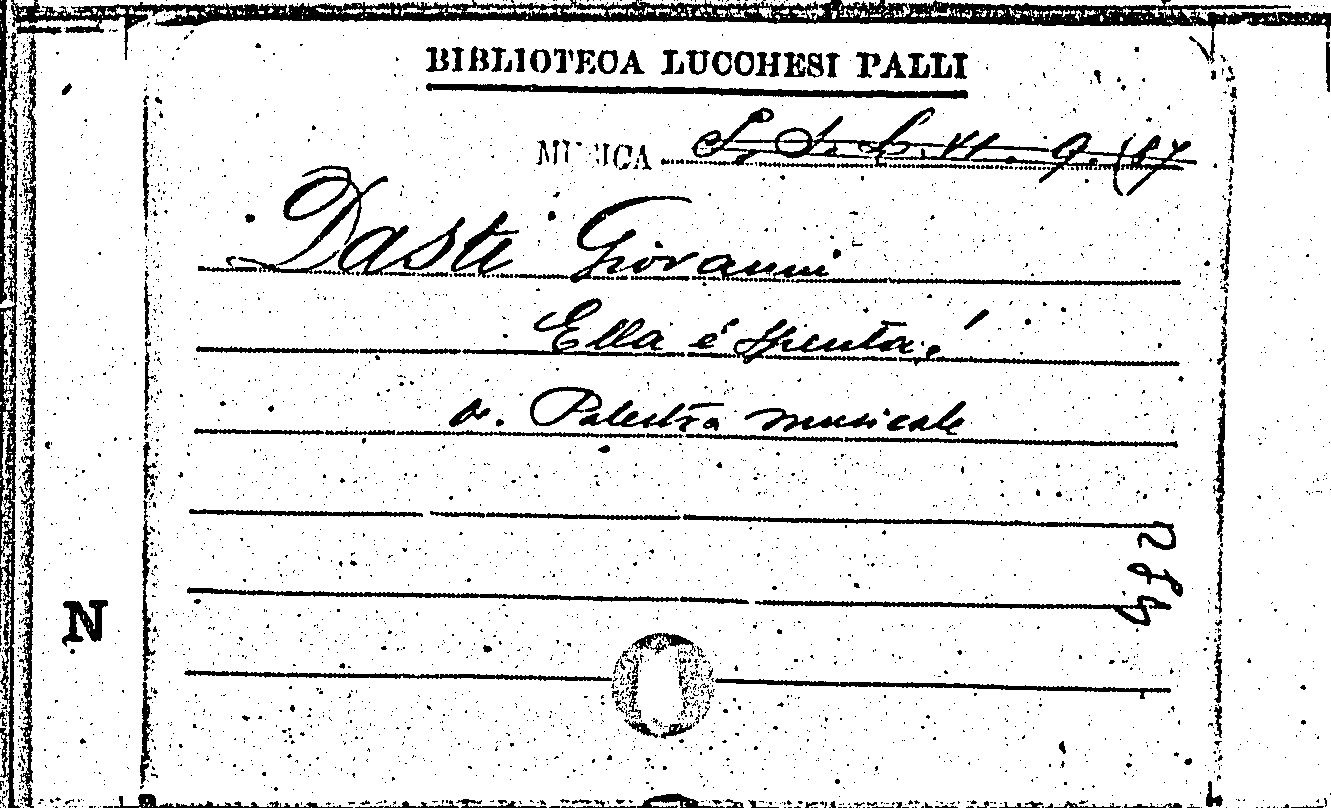 BIBLIOTECA LUCCHESI PALLI
MUSICA
Dasti Giovanni
Ella é spenta!
v. Palestra musicale
N